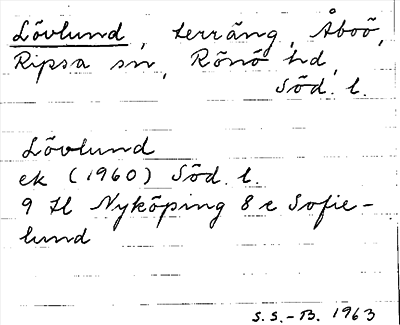 Lövlund, terräng, Åboö,
Ripsa sn, Rönö hd,
Söd. l.
Lövlund
ek (1960) Söd. l.
9 H Nyköping 8 e Sofie-
lund
S.S.-B. 1963